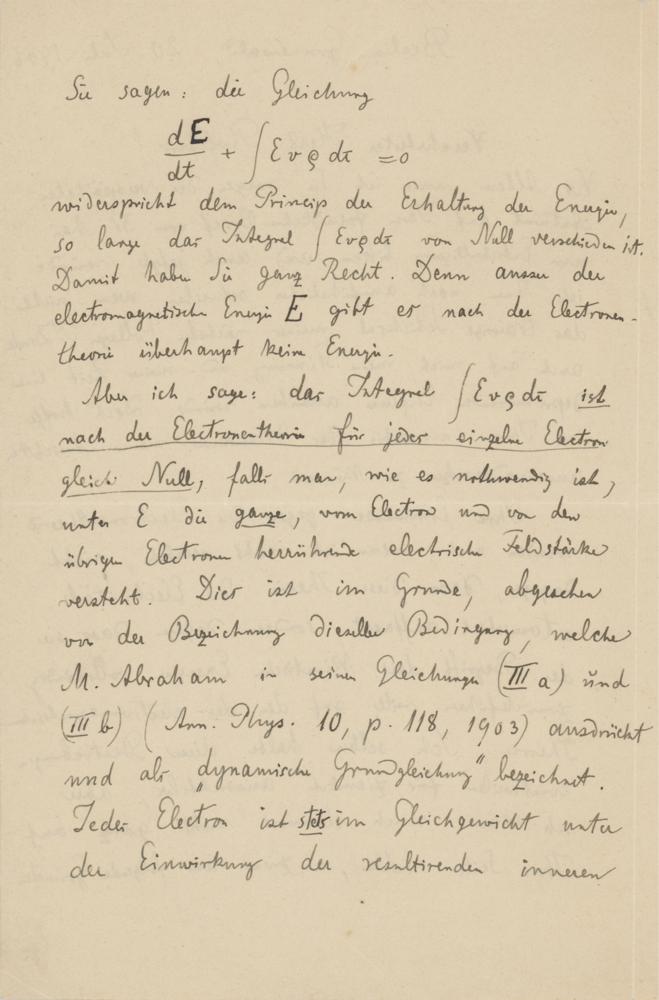 Sie sagen: die Gleichung
dE/dt + ∫ E v ϱ dτ = 0
widerspricht dem Princip der Erhaltung der Energie,
so lange das Integral ∫ E v ϱ dτ von Null verschieden ist.
Damit haben Sie ganz Recht. Denn ausser der
electromagnetische Energie E gibt es nach der Electronen-
theorie überhaupt keine Energie.
Aber ich sage: das Integral ∫ E v ϱ dτ ist
nach der Electronentheorie für jedes einzelne Electron
gleich Null, falls man, wie es nothwendig ist,
unter E die ganze, vom Electron und von den
übrigen Electronen herrührende electrische Feldstärke
versteht. Dies ist im Grunde, abgesehen
von der Bezeichnung dieselbe Bedingung, welche
M. Abraham in seinen Gleichungen (III a) und
(III b) (Ann. Phys. 10, p. 118, 1903) ausdrückt
und als „dynamische Grundgleichung" bezeichnet.
Jedes Electron ist stets im Gleichgewicht unter
der Einwirkung der resultirenden inneren